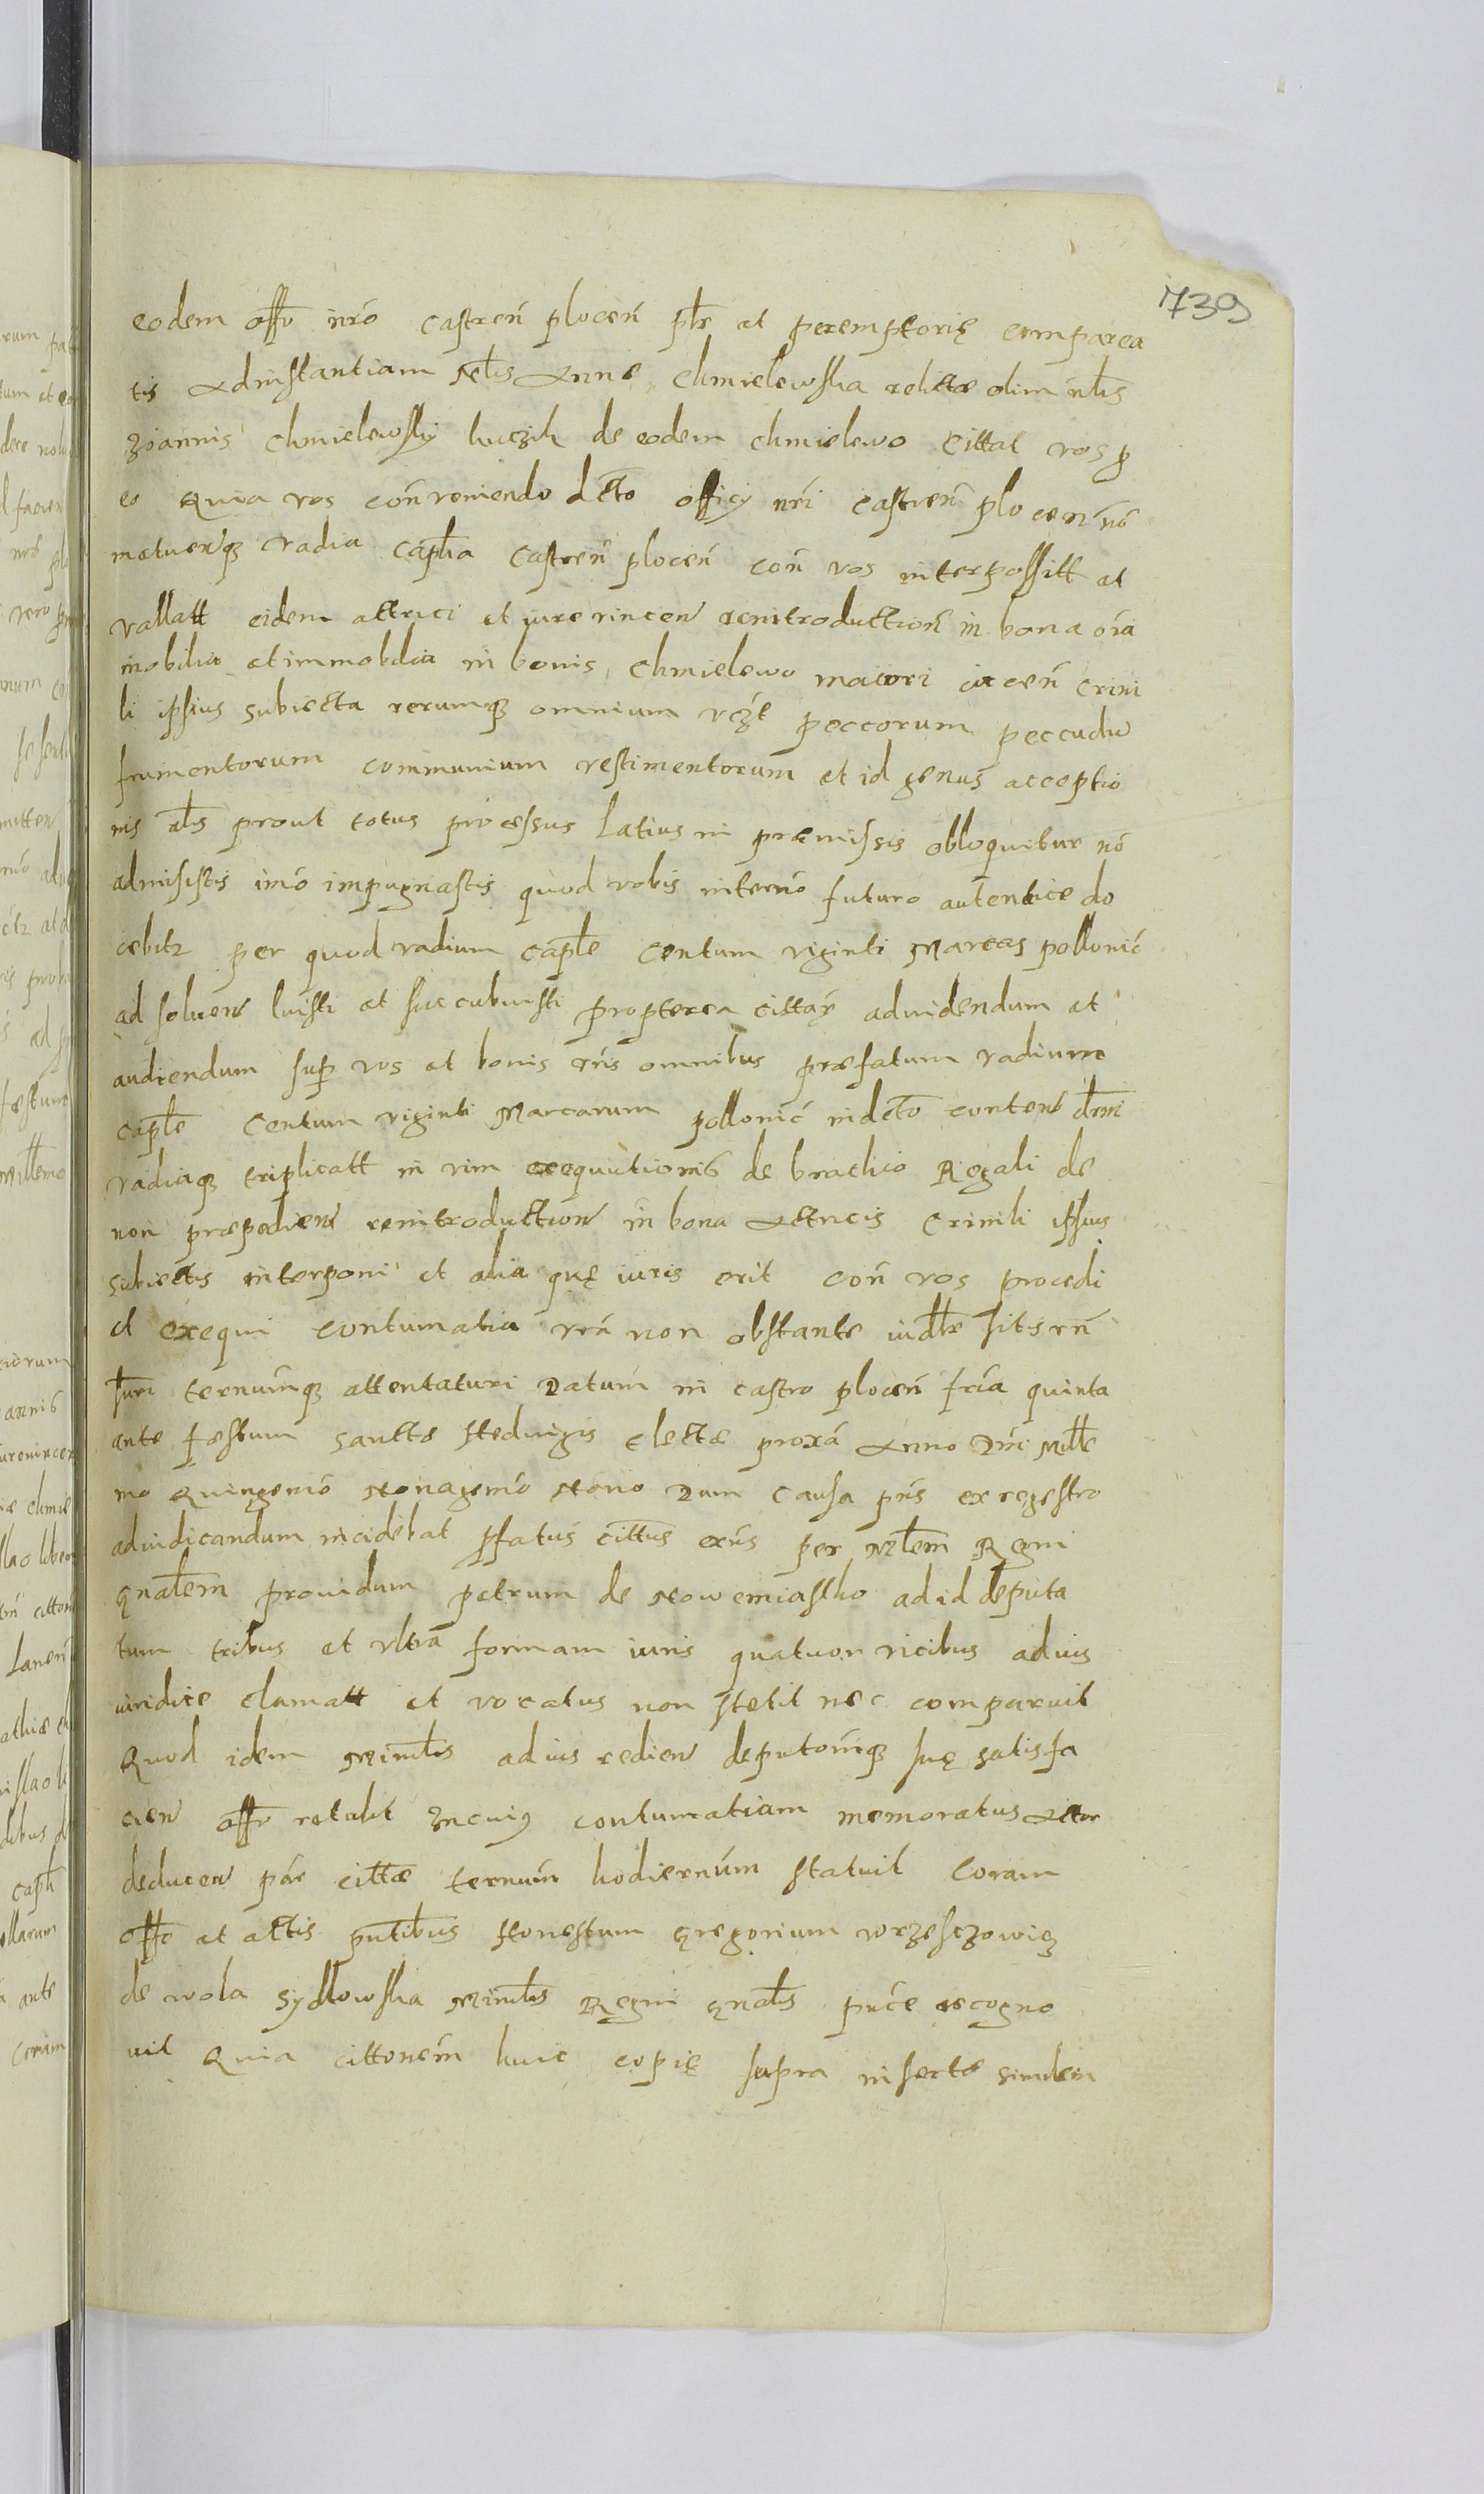 739
eodem offo nro castren plocen plr at peremptorię comparea
tis Adinstantiam Nlis Annæ Chmielewska relictæ olim nlis
Joannis Chmielewskij kuczik de eodem chmielewo Cittat vos p
eo Quia vos contraveniendo dcto officij nri castren plocen no
metuenq vadia caplia castren plocen con vos interpossitt at
vallatt eidem actrici et iure vincen reintroduction in bona oia
mobilia et immobilia in bonis Chmielewo maiori iacen crini
li ipsius subiecta rerumq omnium vczt peccorum peccudu
frumentorum communium vestimentorum et id genus acceptio
nis als prout totus processus latius in præmissis obloquitur no
admisistis imo impugnastis quod vobis in termo futuro autentice do
cebitr per quod vadium caple centum viginti Marcas pollonic
ad soluen luisti at succubuisti propterea cittar advidendum at
audiendum sup vos at bonis vris omnibus præfatum vadium
caple Centum viginti Marcarum pollonic in dcto conten
vadiaq triplicatt in vim exequutionis de brachio Regali de
non præpedien reintroduction in bona Actricis Crinili ipsius
subiectis interponi et alia quę iuris erit con vos procedi
et exequi contumatia vra non obstante iudlr sitis rn
suri termumq attentaturi Datum in castro plocen fria quinta
ante fæstum sanctæ Hedvigis electæ proxa Anno Dni Mille
mo Quingenmo Nonagemo Nono Dum causa pns ex regestro
adiudicandum incidebat pfatus cittus exns per Mlem Regni
gnalem providum petrum de Nowemiastko ad id deputa
tum tribus et vltra formam iuris quatuor vicibus advis
iuridice clamatt et vocatus non stetit nec comparuit
Quod idem Minlis ad ius redien deputoniq suę satisfa
cien offo retulit In cuiq contumatiam memoratus Actor
deducen par cittæ termum hodiernum statuit Coram
offo at actis pntibus Honestum gregorium wrzesczowicz
de wola sydlowska Minlis Regni gnalis puce recogno
uit Quia cittonem huic copię supra insertæ